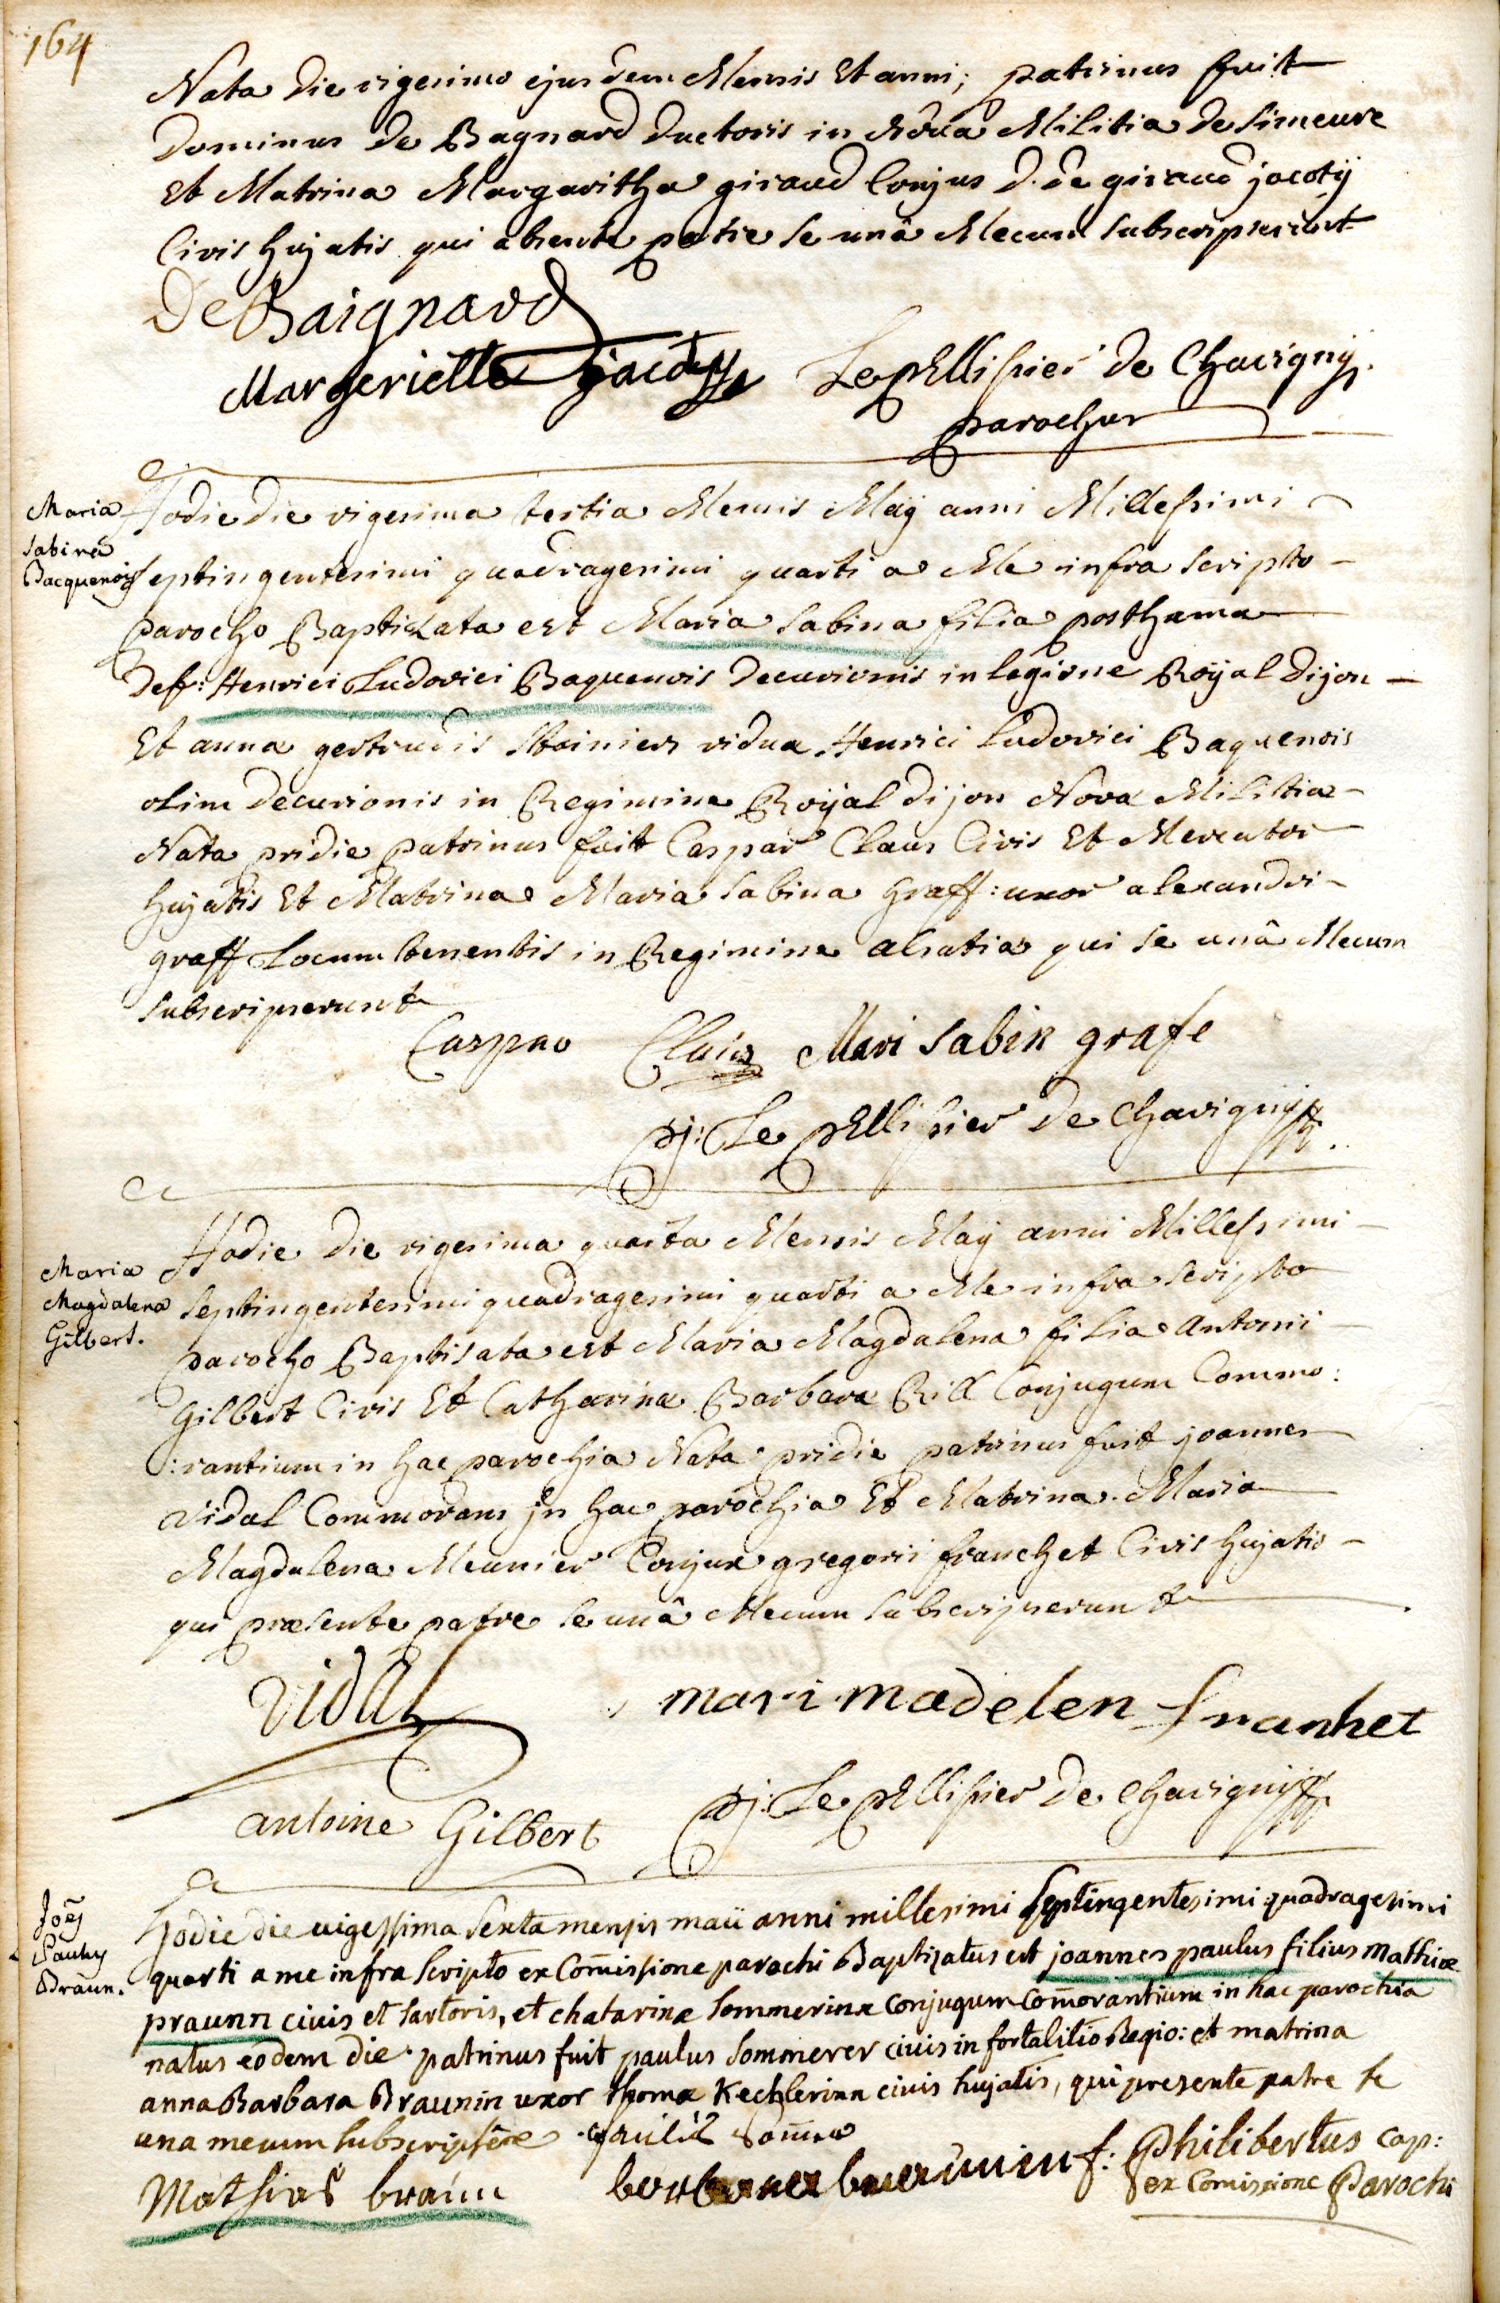 164
Nata die vigesimo ejusdem Mensis Et anni; patrinus fuit
Dominus de Bagnard ductoris in Nova Militia de Simeure
Et Matrina Margaritha giraud Conjus d. de giraud jacotij
Civis hujatis qui absente patre se unâ Mecum subscripserunt
De Baignard
Margeriette jacoty Le pElissier de Chavigny.
parochus
Maria
Sabina
Bacquenois
Hodie die vigesima tertia Mensis Maÿ anni Millessimi
Septingentesimi quadragesimi quarti a Me infra scripto
parocho Baptizata est Maria Sabina filia posthuma
Def: Henrici Ludovici Baquenois Decurionis in legione Roÿal dijon
Et anna gertrudis Steinier vidua Henrici Ludovici Baquenois
olim Decurionis in Regimine Roÿal dijon Nova Militia
Nata pridie patrinus fuit Caspar Claus Civis Et Mercator
hujatis Et Matrina Maria Sabina graff: uxor alexandri
graff Locum tenentis in Regimine alsatia qui se unâ Mecum
subscripserunt
Caspar Claus Mari Sabin grafe
pj: Le pEllissier de Chavigny
Maria
Magdalena
Gilbert.
Hodie die vigesima quarta Mensis Maÿ anni Millessimi
Septingentesimi quadragesimi quarti a Me infra scripto
parocho Baptisata est Maria Magdalena filia Antonii
Gilbert Civis Et Catharina Barbara Rill Conjugum Commo:
:rantium in hac parochia Nata pridie patrinus fuit joannes
Vidal Commorans jn hac parochia Et Matrina. Maria
Magdalena Meunier Conjux gregorii franchet Civis hujatis
qui præsente patre se unâ Mecum subscripserunt
Vidal mari madelen franhet
antoine Gilbert pj: Le pEllissier de Chavigny
Joēs
Paulus
Braun.
Hodie die vigessima sexta mensis maii anni millesimi septingentesimi quadragesimi
quarti a me infra scripto ex Comissione parochi Baptizatus est joannes paulus filius Mathiæ
praunn civis et sartoris, et chatarinæ Sommerinæ conjugum comorantium in hac parochia
natus eodem die patrinus fuit paulus Sommerer civis in fortalitio Regio: et matrina
anna Barbara Braunin uxor thomæ Kechlerinn civis hujatis, qui presente patre se
una mecum subscripsēre
Mathias braun f: Philibertus cap:
ex Comissione Parochi